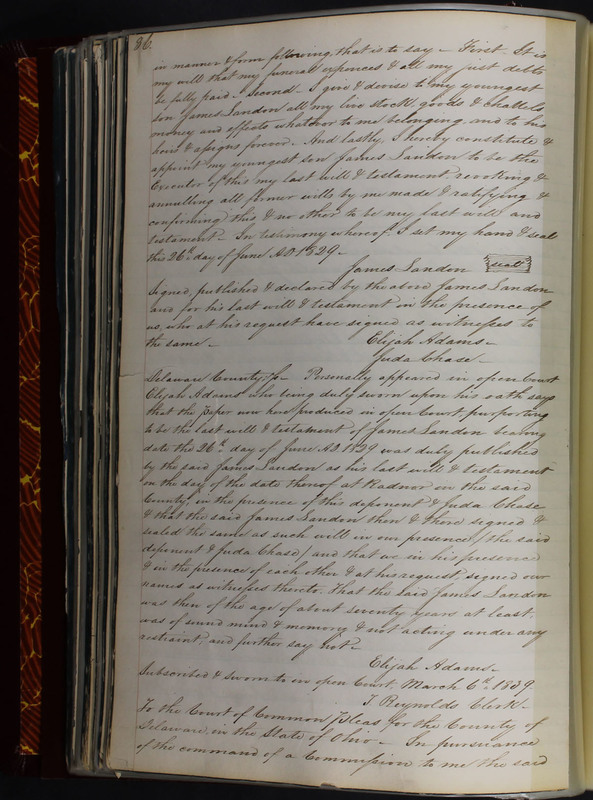 86.
in manner & form following, that is to say - First It is
my will that my funeral expences & all my just debts
be fully paid - Second - I give & devise to my youngest
son James Landon all my live stock, goods & chattels
money and effects whatever to me belonging and to his
heirs & assigns forever. And lastly, I hereby constitute &
appoint my youngest son James Landon to be the
Executor of this my last will & testament, revoking &
annulling all former wills by me made & ratifying &
confirming this & no other to be my last will and
testament - In testimony whereof I set my hand & seal
this 26th day of June AD 1829 -
James Landon seal
Signed, published & declared by the above James Landon
and for his last will & testament in the presence of
us, who at his request have signed as witnesses to
the same -
Elijah Adams -
Juda Chase -
Delaware County, ss - Personally appeared in open Court
Elijah Adams who being duly sworn upon his oath says
that the paper now here produced in open Court purporting
to be the last will & testament of James Landon bearing
date the 26th day of June AD 1829 was duly published
by the said James Landon as his last will & testament
on the day of the date thereof at Radnor in the said
County, in the presence of this deponent & Juda Chase
& that the said James Landon then & there signed &
sealed the same as such will in our presence (the said
deponent & Juda Chase) and that we in his presence
& in the presence of each other & at his request, signed our
names as witnesses thereto. That the said James Landon
was then of the age of about seventy years at least,
was of sound mind & memory & not acting under any
restraint, and further say not -
Elijah Adams -
Subscribed & sworn to in open Court, March 6th 1839.
T. Reynolds Clerk -
To the Court of Common Pleas for the County of
Delaware in the State of Ohio - In pursuance
of the command of a Commission to me the said